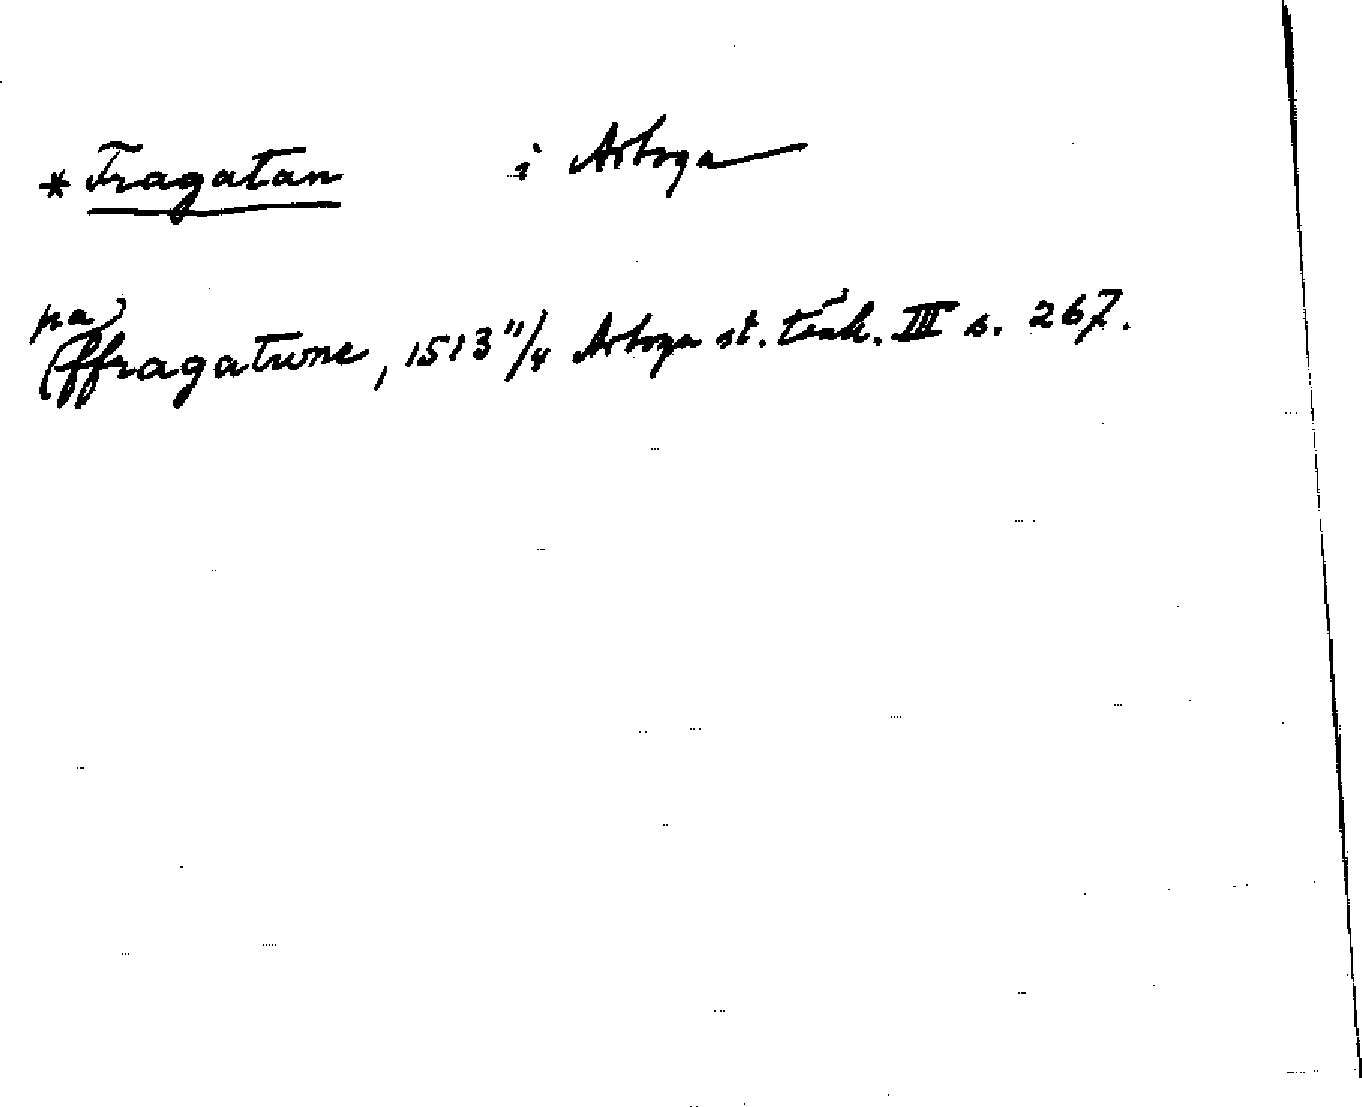 * Fragatan i Arboga
(pa) ffragatwne, 1513 11/4 Arboga st. tänk. III s. 267.